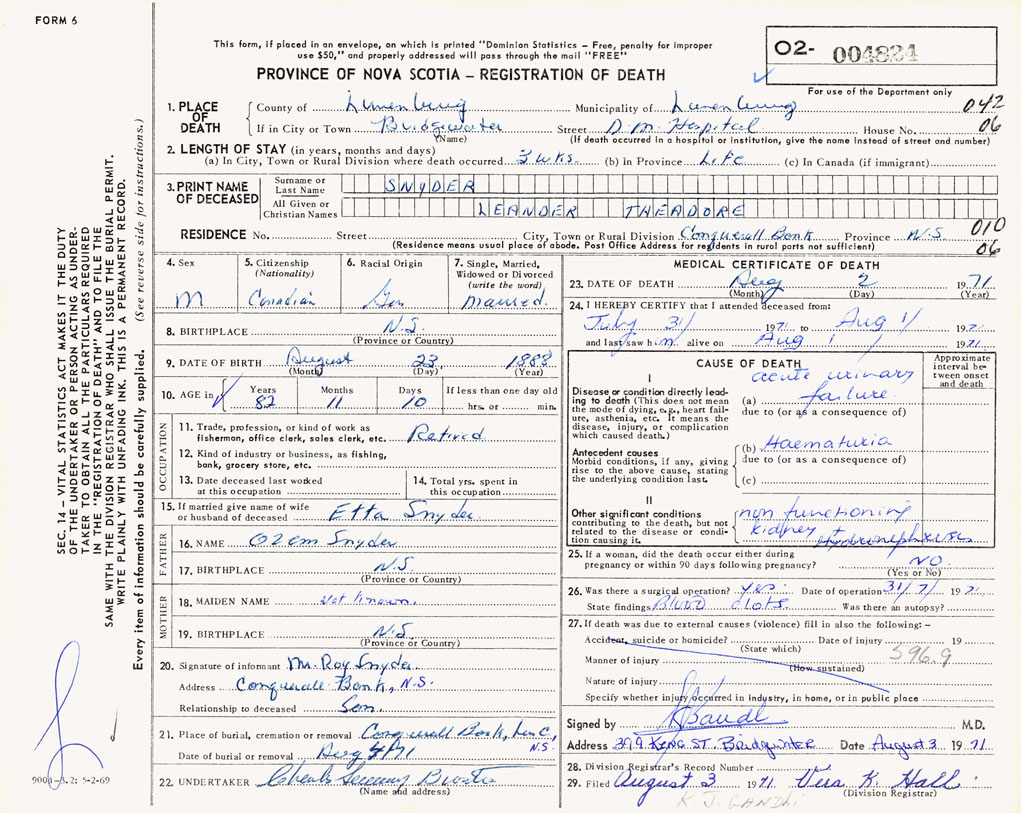 FORM 6
This form, if placed in an envelope, on which is printed "Dominion Statistics – Free, penalty for improper
use $50," and properly addressed will pass through the mail "FREE"
PROVINCE OF NOVA SCOTIA – REGISTRATION OF DEATH
02- 004824
For use of the Department only
1. PLACE OF DEATH County of Lunenburg Municipality of Lunenburg 042
If in City or Town Bridgewater Street D.M. Hospital House No. 06
(Name) (If death occurred in a hospital or institution, give the name instead of street and number)
2. LENGTH OF STAY (in years, months and days)
(a) In City, Town or Rural Division where death occurred 3 wks. (b) In Province Life (c) In Canada (if immigrant)
3. PRINT NAME OF DECEASED Surname or Last Name SNYDER
All Given or Christian Names LEANDER THEADORE
RESIDENCE No. Street City, Town or Rural Division Conquerall Bank Province N.S. 010
(Residence means usual place of abode. Post Office Address for residents in rural parts not sufficient) 06
4. Sex M
5. Citizenship (Nationality) Canadian
6. Racial Origin Ger
7. Single, Married, Widowed or Divorced (write the word) Married.
8. BIRTHPLACE N.S.
(Province or Country)
9. DATE OF BIRTH August 23 1888
(Month) (Day) (Year)
10. AGE in Years 82 Months 11 Days 10 If less than one day old hrs. or min.
OCCUPATION
11. Trade, profession, or kind of work as
fisherman, office clerk, sales clerk, etc. Retired
12. Kind of industry or business, as fishing,
bank, grocery store, etc.
13. Date deceased last worked
at this occupation
14. Total yrs. spent in
this occupation
15. If married give name of wife
or husband of deceased Etta Snyder
FATHER
16. NAME Ozem Snyder
17. BIRTHPLACE N.S.
(Province or Country)
MOTHER
18. MAIDEN NAME Not known.
19. BIRTHPLACE N.S.
(Province or Country)
20. Signature of informant Mr. Roy Snyder
Address Conquerall Bank, N.S.
Relationship to deceased Son.
21. Place of burial, cremation or removal Conquerall Bank, Lun C, N.S.
Date of burial or removal Aug 4/71
22. UNDERTAKER
(Name and address)
MEDICAL CERTIFICATE OF DEATH
23. DATE OF DEATH Aug 2 1971
(Month) (Day) (Year)
24. I HEREBY CERTIFY that I attended deceased from:
July 31/ 1971 to Aug 1/ 1971
and last saw him alive on Aug 1/ 1971
CAUSE OF DEATH
Approximate interval between onset and death
I
Disease or condition directly leading to death (This does not mean the mode of dying, e.g., heart failure, asthenia, etc. It means the disease, injury, or complication which caused death.)
(a) acute urinary failure.
due to (or as a consequence of)
Antecedent causes
Morbid conditions, if any, giving rise to the above cause, stating the underlying condition last.
(b) Haematuria
due to (or as a consequence of)
(c)
II
Other significant conditions
contributing to the death, but not related to the disease or condition causing it.
non functioning
kidney + Hydronephrosis
25. If a woman, did the death occur either during
pregnancy or within 90 days following pregnancy? NO
(Yes or No)
26. Was there a surgical operation? yes. Date of operation 31/7/ 1971
State findings Blood clots. Was there an autopsy?
27. If death was due to external causes (violence) fill in also the following: –
Accident, suicide or homicide? Date of injury 19
(State which) 596.9
Manner of injury
(How sustained)
Nature of injury
Specify whether injury occurred in industry, in home, or in public place
Signed by M.D.
Address 399 King St. Bridgewater Date August 3 1971
28. Division Registrar's Record Number
29. Filed August 3 1971 Vera K. Hall
(Division Registrar)
K. J. GANDHI
SEC. 14 – VITAL STATISTICS ACT MAKES IT THE DUTY
OF THE UNDERTAKER OR PERSON ACTING AS UNDER-
TAKER TO OBTAIN ALL THE PARTICULARS REQUIRED
IN THE "REGISTRATION OF DEATH" AND TO FILE THE
SAME WITH THE DIVISION REGISTRAR WHO SHALL ISSUE THE BURIAL PERMIT.
WRITE PLAINLY WITH UNFADING INK. THIS IS A PERMANENT RECORD.
Every item of information should be carefully supplied. (See reverse side for instructions.)
5-2-69